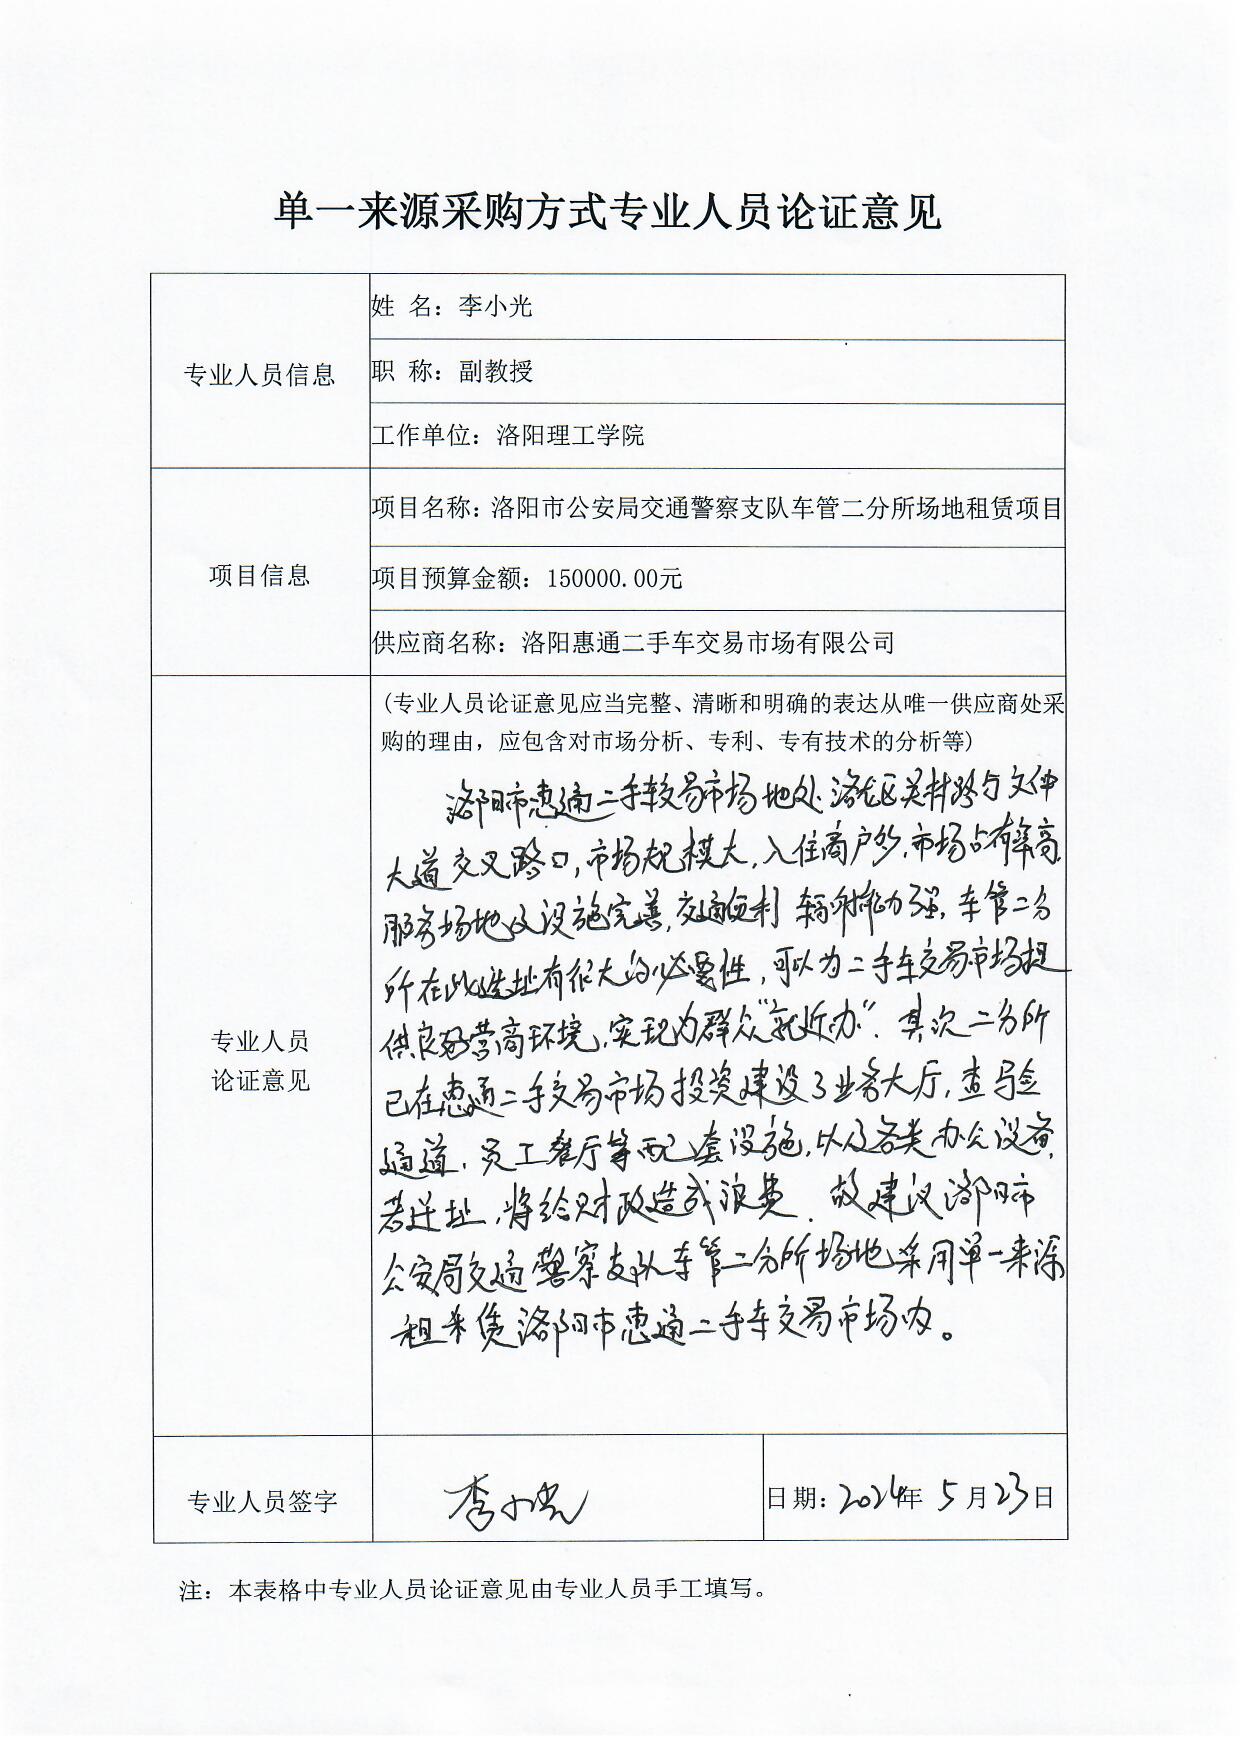 单一来源采购方式专业人员论证意见
专业人员信息
姓 名：李小光
职 称：副教授
工作单位：洛阳理工学院
项目信息
项目名称：洛阳市公安局交通警察支队车管二分所场地租赁项目
项目预算金额：150000.00元
供应商名称：洛阳惠通二手车交易市场有限公司
专业人员
论证意见
(专业人员论证意见应当完整、清晰和明确的表达从唯一供应商处采
购的理由，应包含对市场分析、专利、专有技术的分析等)
洛阳市惠通二手车交易市场地处洛龙区关林路与文仲
大道交叉路口，市场规模大，入住商户多，市场占有率高，
服务场地及设施完善，交通便利 辐射能力强，车管二分
所在此选址有很大的必要性，可以为二手车交易市场提
供良好营商环境，实现为群众“就近办”．其次二分所
已在惠通二手交易市场投资建设了业务大厅，查验
通道，员工餐厅等配套设施，以及各类办公设备，
若迁址，将给财政造成浪费．故建议洛阳市
公安局交通警察支队车管二分所场地采用单一来源
租赁洛阳市惠通二手车交易市场办。
专业人员签字
李小光
日期：2024年 5 月 23 日
注：本表格中专业人员论证意见由专业人员手工填写。